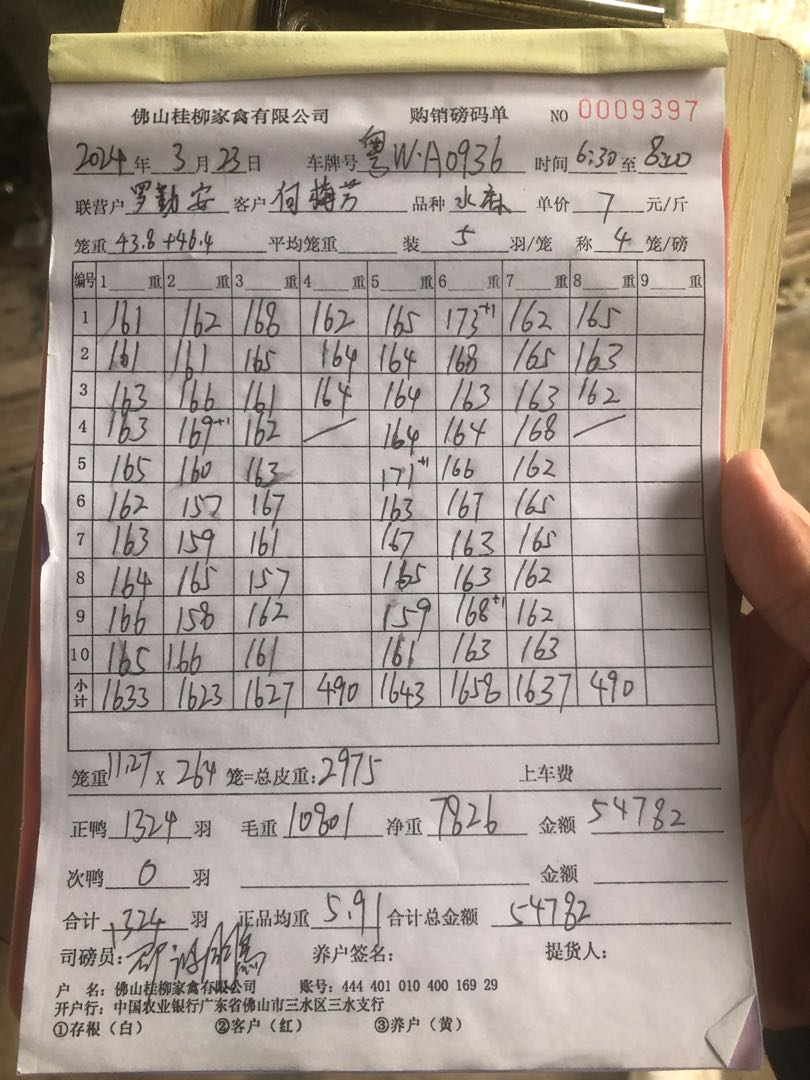 佛山桂柳家禽有限公司 购销磅码单 NO 0009397
2024年3月23日 车牌号 粤W·A0936 时间 6:30至8:00
联营户 罗勤安 客户 何梅芳 品种 水麻 单价 7 元/斤
笼重 43.8+46.4 平均笼重 装 5 羽/笼 称 4 笼/磅
编号 1 重 2 重 3 重 4 重 5 重 6 重 7 重 8 重 9 重
1 161 162 168 162 165 173+1 162 165
2 161 161 165 164 164 168 165 163
3 163 166 161 164 164 163 163 162
4 163 169+1 162 / 164 164 168 /
5 165 160 163 171+1 166 162
6 162 157 167 163 167 165
7 163 159 161 167 163 165
8 164 165 157 165 163 162
9 166 158 162 159 168+1 162
10 165 166 161 161 163 163
小计 1633 1623 1627 490 1643 1658 1637 490
笼重 11.27 X 264 笼=总皮重: 2975 上车费
正鸭 1324 羽 毛重 10801 净重 7826 金额 54782
次鸭 0 羽 金额
合计 1324 羽 正品均重 5.91 合计总金额 54782
司磅员: 养户签名: 提货人:
户 名: 佛山桂柳家禽有限公司 账号: 444 401 010 400 169 29
开户行: 中国农业银行广东省佛山市三水区三水支行
①存根（白） ②客户（红） ③养户（黄）